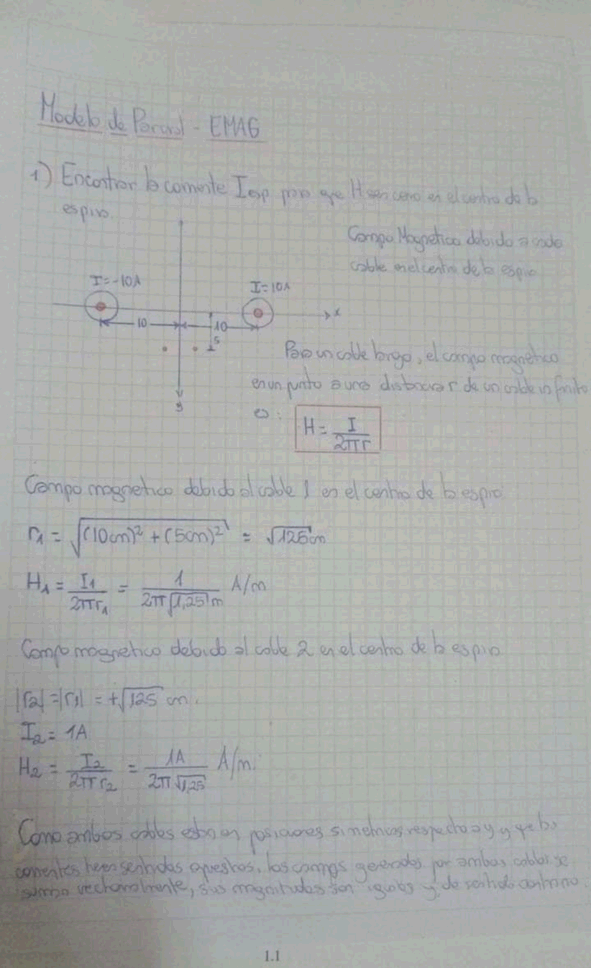 Modelo de Parcial - EMAG
1) Encontrar la corriente Iesp para que H sea cero en el centro de la
espira.
Campo Magnetico debido a cada
cable en el centro de la espira
I=-10A
I=10A
x
10
10
5
y
Para un cable largo, el campo magnético
en un punto a una distancia r de un cable infinito
es:
H = I / 2πr
Campo magnetico debido al cable 1 en el centro de la espira
r1 = √((10cm)² + (5cm)²) = √125 cm
H1 = I1 / 2πr1 = 1 / 2π√1,25 m A/m
Campo magnetico debido al cable 2 en el centro de la espira
|r2| = |r1| = +√125 cm.
I2 = 1A
H2 = I2 / 2πr2 = 1A / 2π√1,25 A/m.
Como ambos cables estan en posiciones simetricas respecto a y y que las
corrientes tienen sentidos opuestos, los campos generados por ambos cables se
suman vectorialmente, sus magnitudes son iguales y de sentido contrario.
1.1